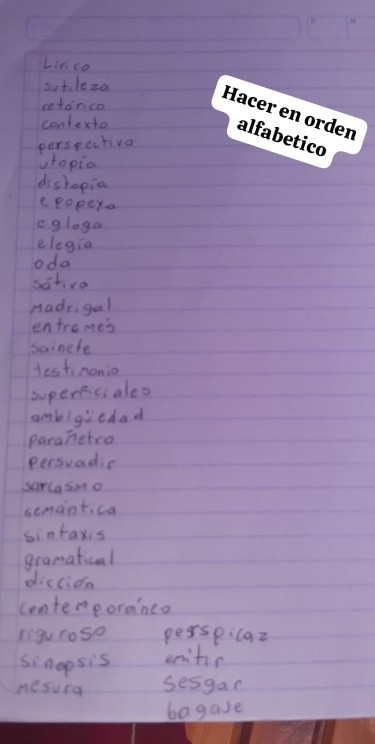 Hacer en orden
alfabetico
Lirico
sutileza
retórico
contexto
perspectiva
utopía
distopía
epopeya
egloga
elegía
oda
sátira
Madrigal
entremés
sainete
testimonio
superficiales
ambigüedad
parámetro
persuadir
sarcasmo
semántica
sintaxis
gramatical
dicción
contemporáneo
riguroso perspicaz
sinopsis emitir
mesura sesgar
bagaje